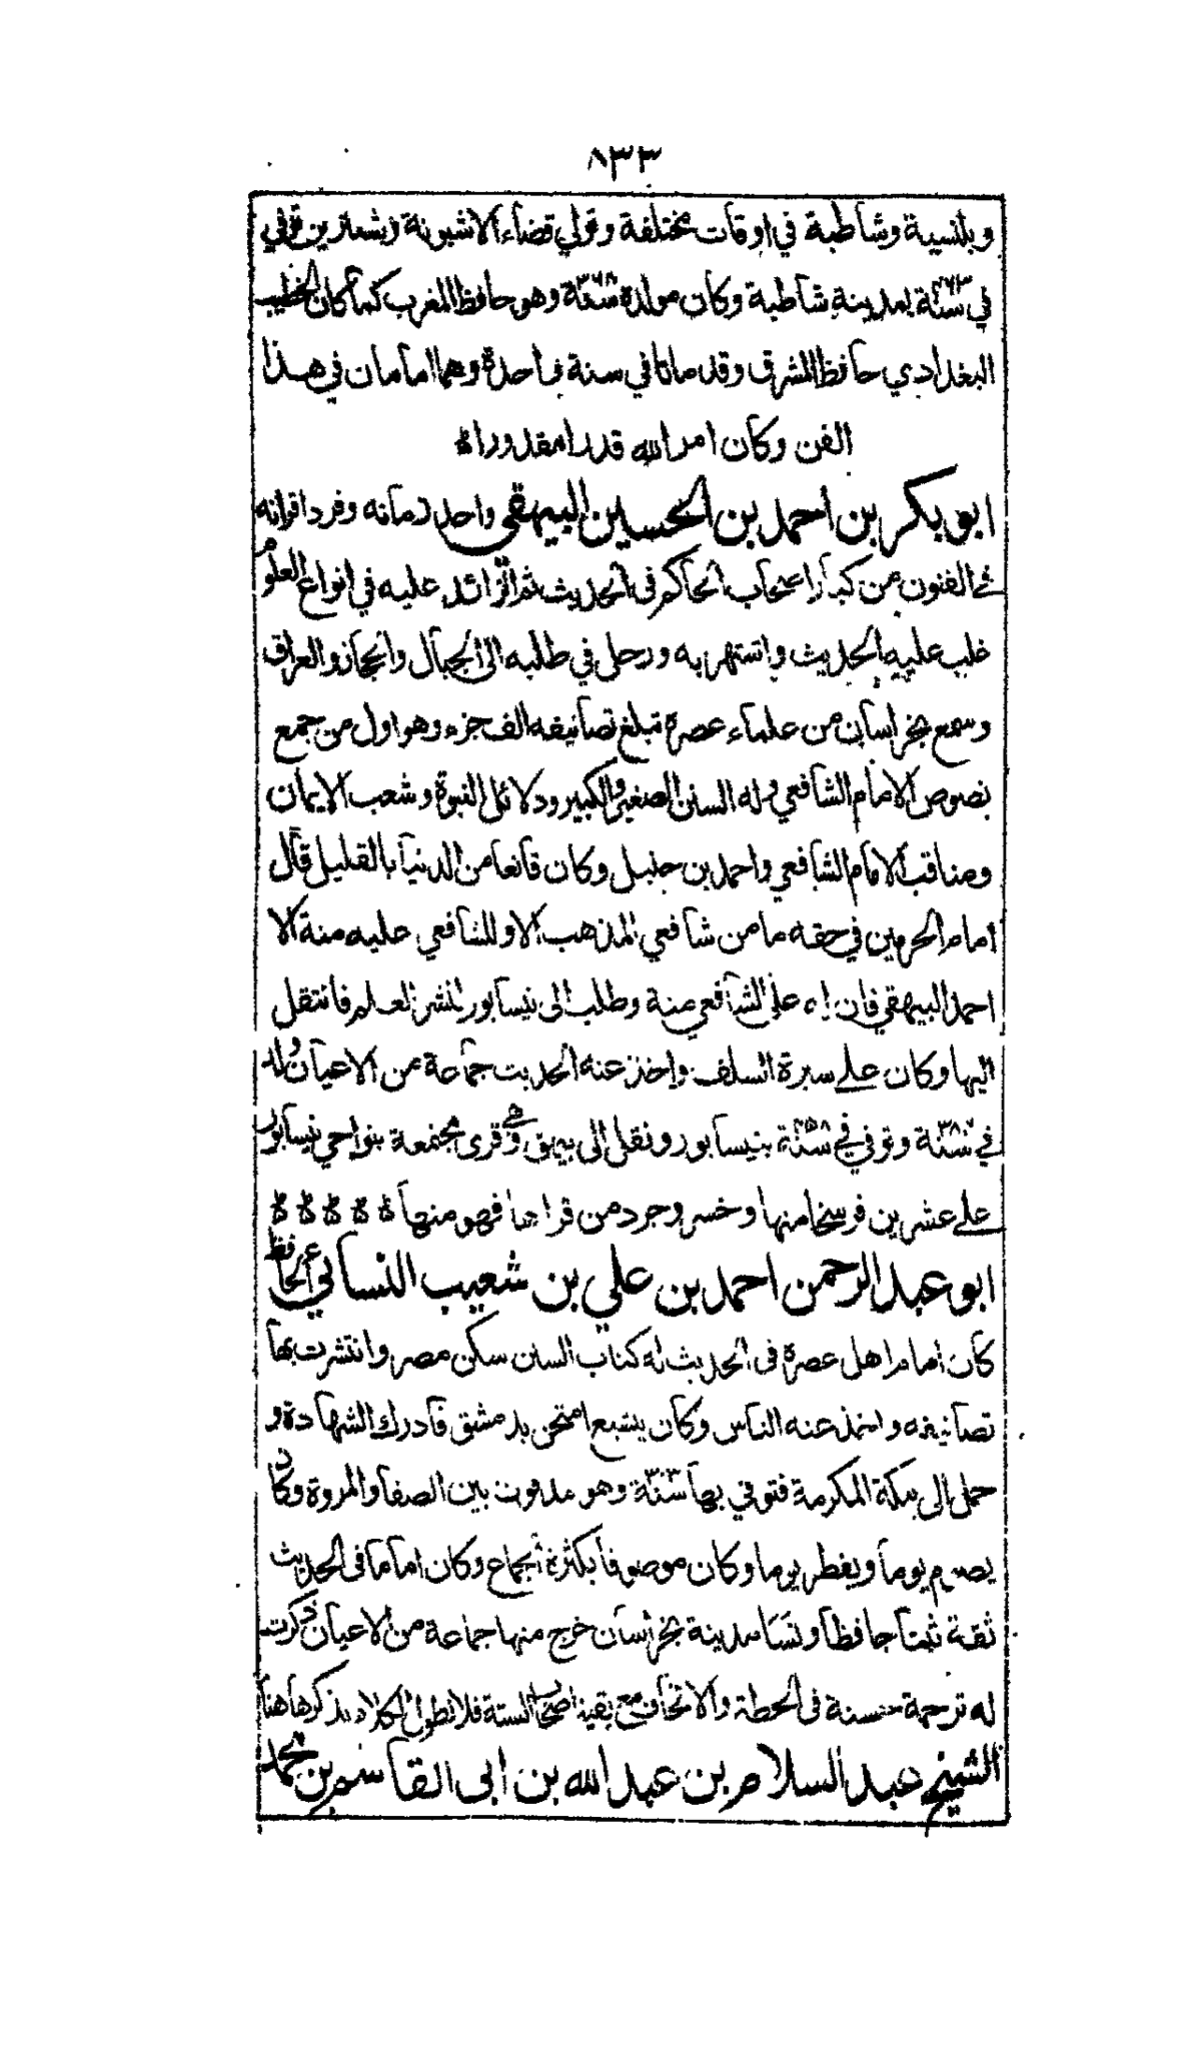 ٨٣٣
وبلنسية وشاطبة في اوقات مختلفة وتولي قضاء الاشبونة وشنترين توفي
في سنة ٤٦٣ بمدينة شاطبة وكان مولده سنة ٣٦٨ وهو حافظ المغرب كما كان الخطيب
البغدادي حافظ المشرق وقد ماتا في سنة واحدة وهما امامان في هذا
الفن وكان امر الله قدرا مقدورا ه
ابو بكر بن احمد بن الحسين البيهقي واحد زمانه وفرد اقرانه
في الفنون من كبار اصحاب الحاكم في الحديث ثم الزائد عليه في انواع العلوم
غلب عليه الحديث واشتهر به ورحل في طلبه الى الجبال والحجاز والعراق
وسمع بخراسان من علماء عصره تبلغ تصانيفه الف جزء وهو اول من جمع
نصوص الامام الشافعي وله السنن الصغير والكبير ودلائل النبوة وشعب الايمان
ومناقب الامام الشافعي واحمد بن حنبل وكان قانعا من الدنيا بالقليل قال
امام الحرمين في حقه ما من شافعي المذهب الا وللشافعي عليه منة الا
احمد البيهقي فان له على الشافعي منة وطلب الى نيسابور لنشر العلم فانتقل
اليها وكان علے سيرة السلف واخذ عنه الحديث جماعة من الاعيان ولد
في سنة ٣٨٤ وتوفي في سنة ٤٥٨ بنيسابور ونقل الى بيهق وهي قرى مجتمعة بنواحي نيسابور
علے عشرين فرسخا منها وخسروجرد من قراها فهو منها ه ه ه ه ه
ابو عبد الرحمن احمد بن علي بن شعيب النسائي الحافظ
كان امام اهل عصره في الحديث له كتاب السنن سكن مصر وانتشرت بها
تصانيفه واخذ عنه الناس وكان يتشيع امتحن بدمشق فادرك الشهادة و
حمل الى مكة المكرمة فتوفي بها سنة ٣٠٣ وهو مدفون بين الصفا والمروة وكان
يصوم يوما ويفطر يوما وكان موصوفا بكثرة الجماع وكان اماما في الحديث
ثقة ثبتا حافظا ونسا مدينة بخراسان خرج منها جماعة من الاعيان ذكرت
له ترجمة حسنة في الحطة والاتحاف مع بقية اصحاب الستة فلا نطول الكلام بذكرها هنا
الشيخ عبد السلام بن عبد الله بن ابي القاسم بن محمد